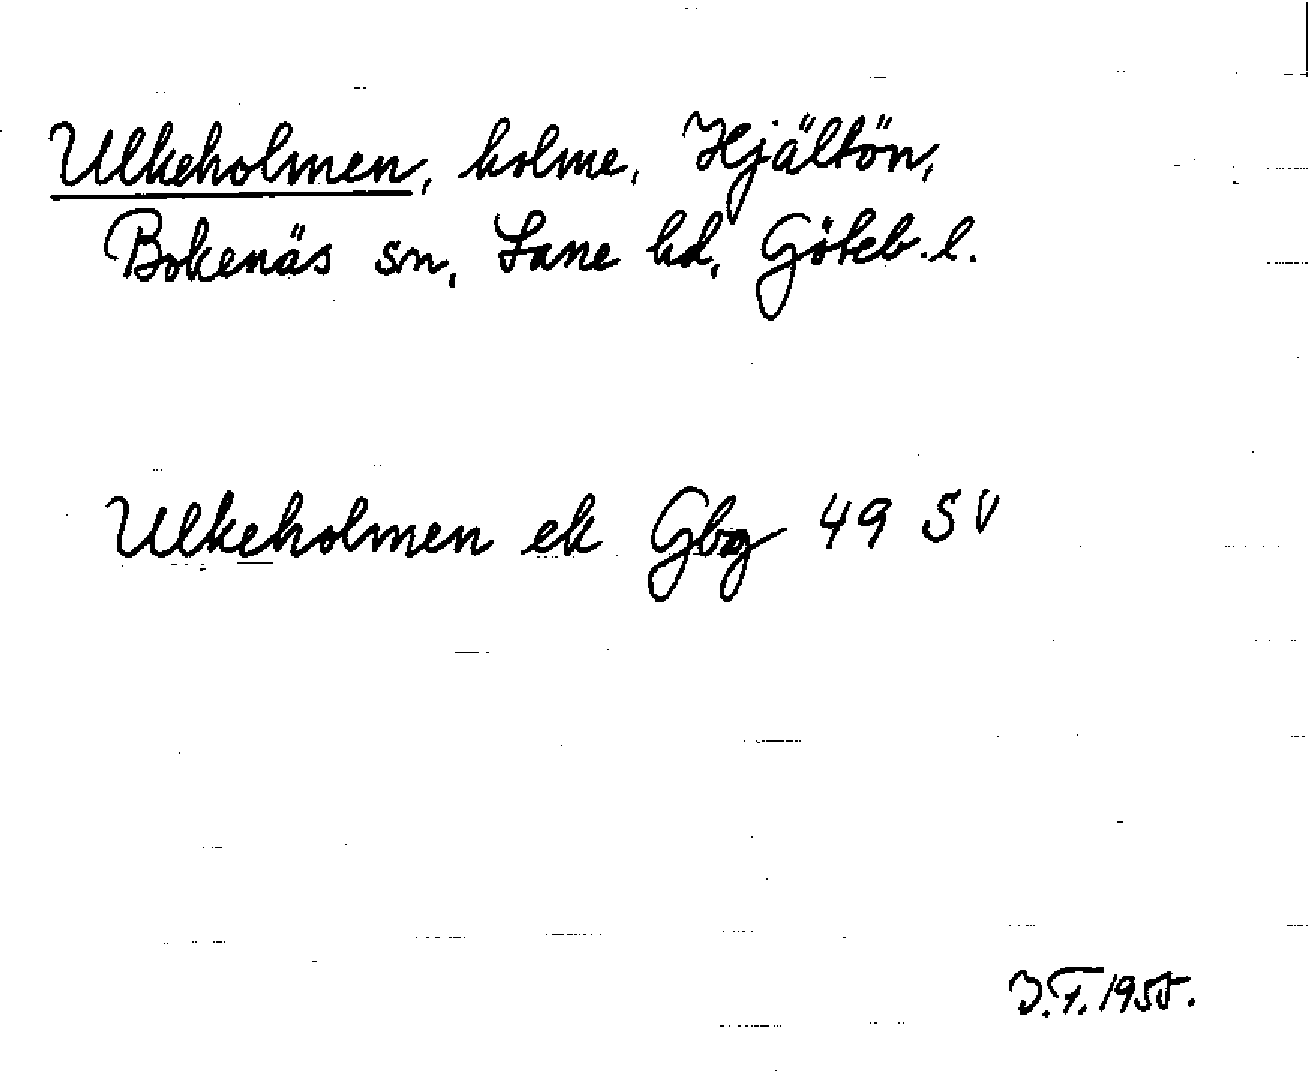 Ulkeholmen, holme, Hjältön,
Bokenäs sn, Lane hd, Göteb. l.
Ulkeholmen ek Gbg 49 SV
I.F. 1955.